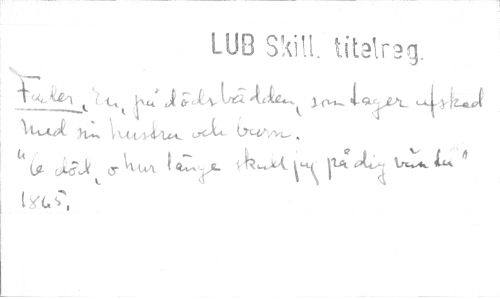 LUB Skill. titelreg.
Fader, En, på dödsbädden, som tager afsked
med sin hustru och barn.
"O död, o hur länge skall jag på dig vänta"
1865.